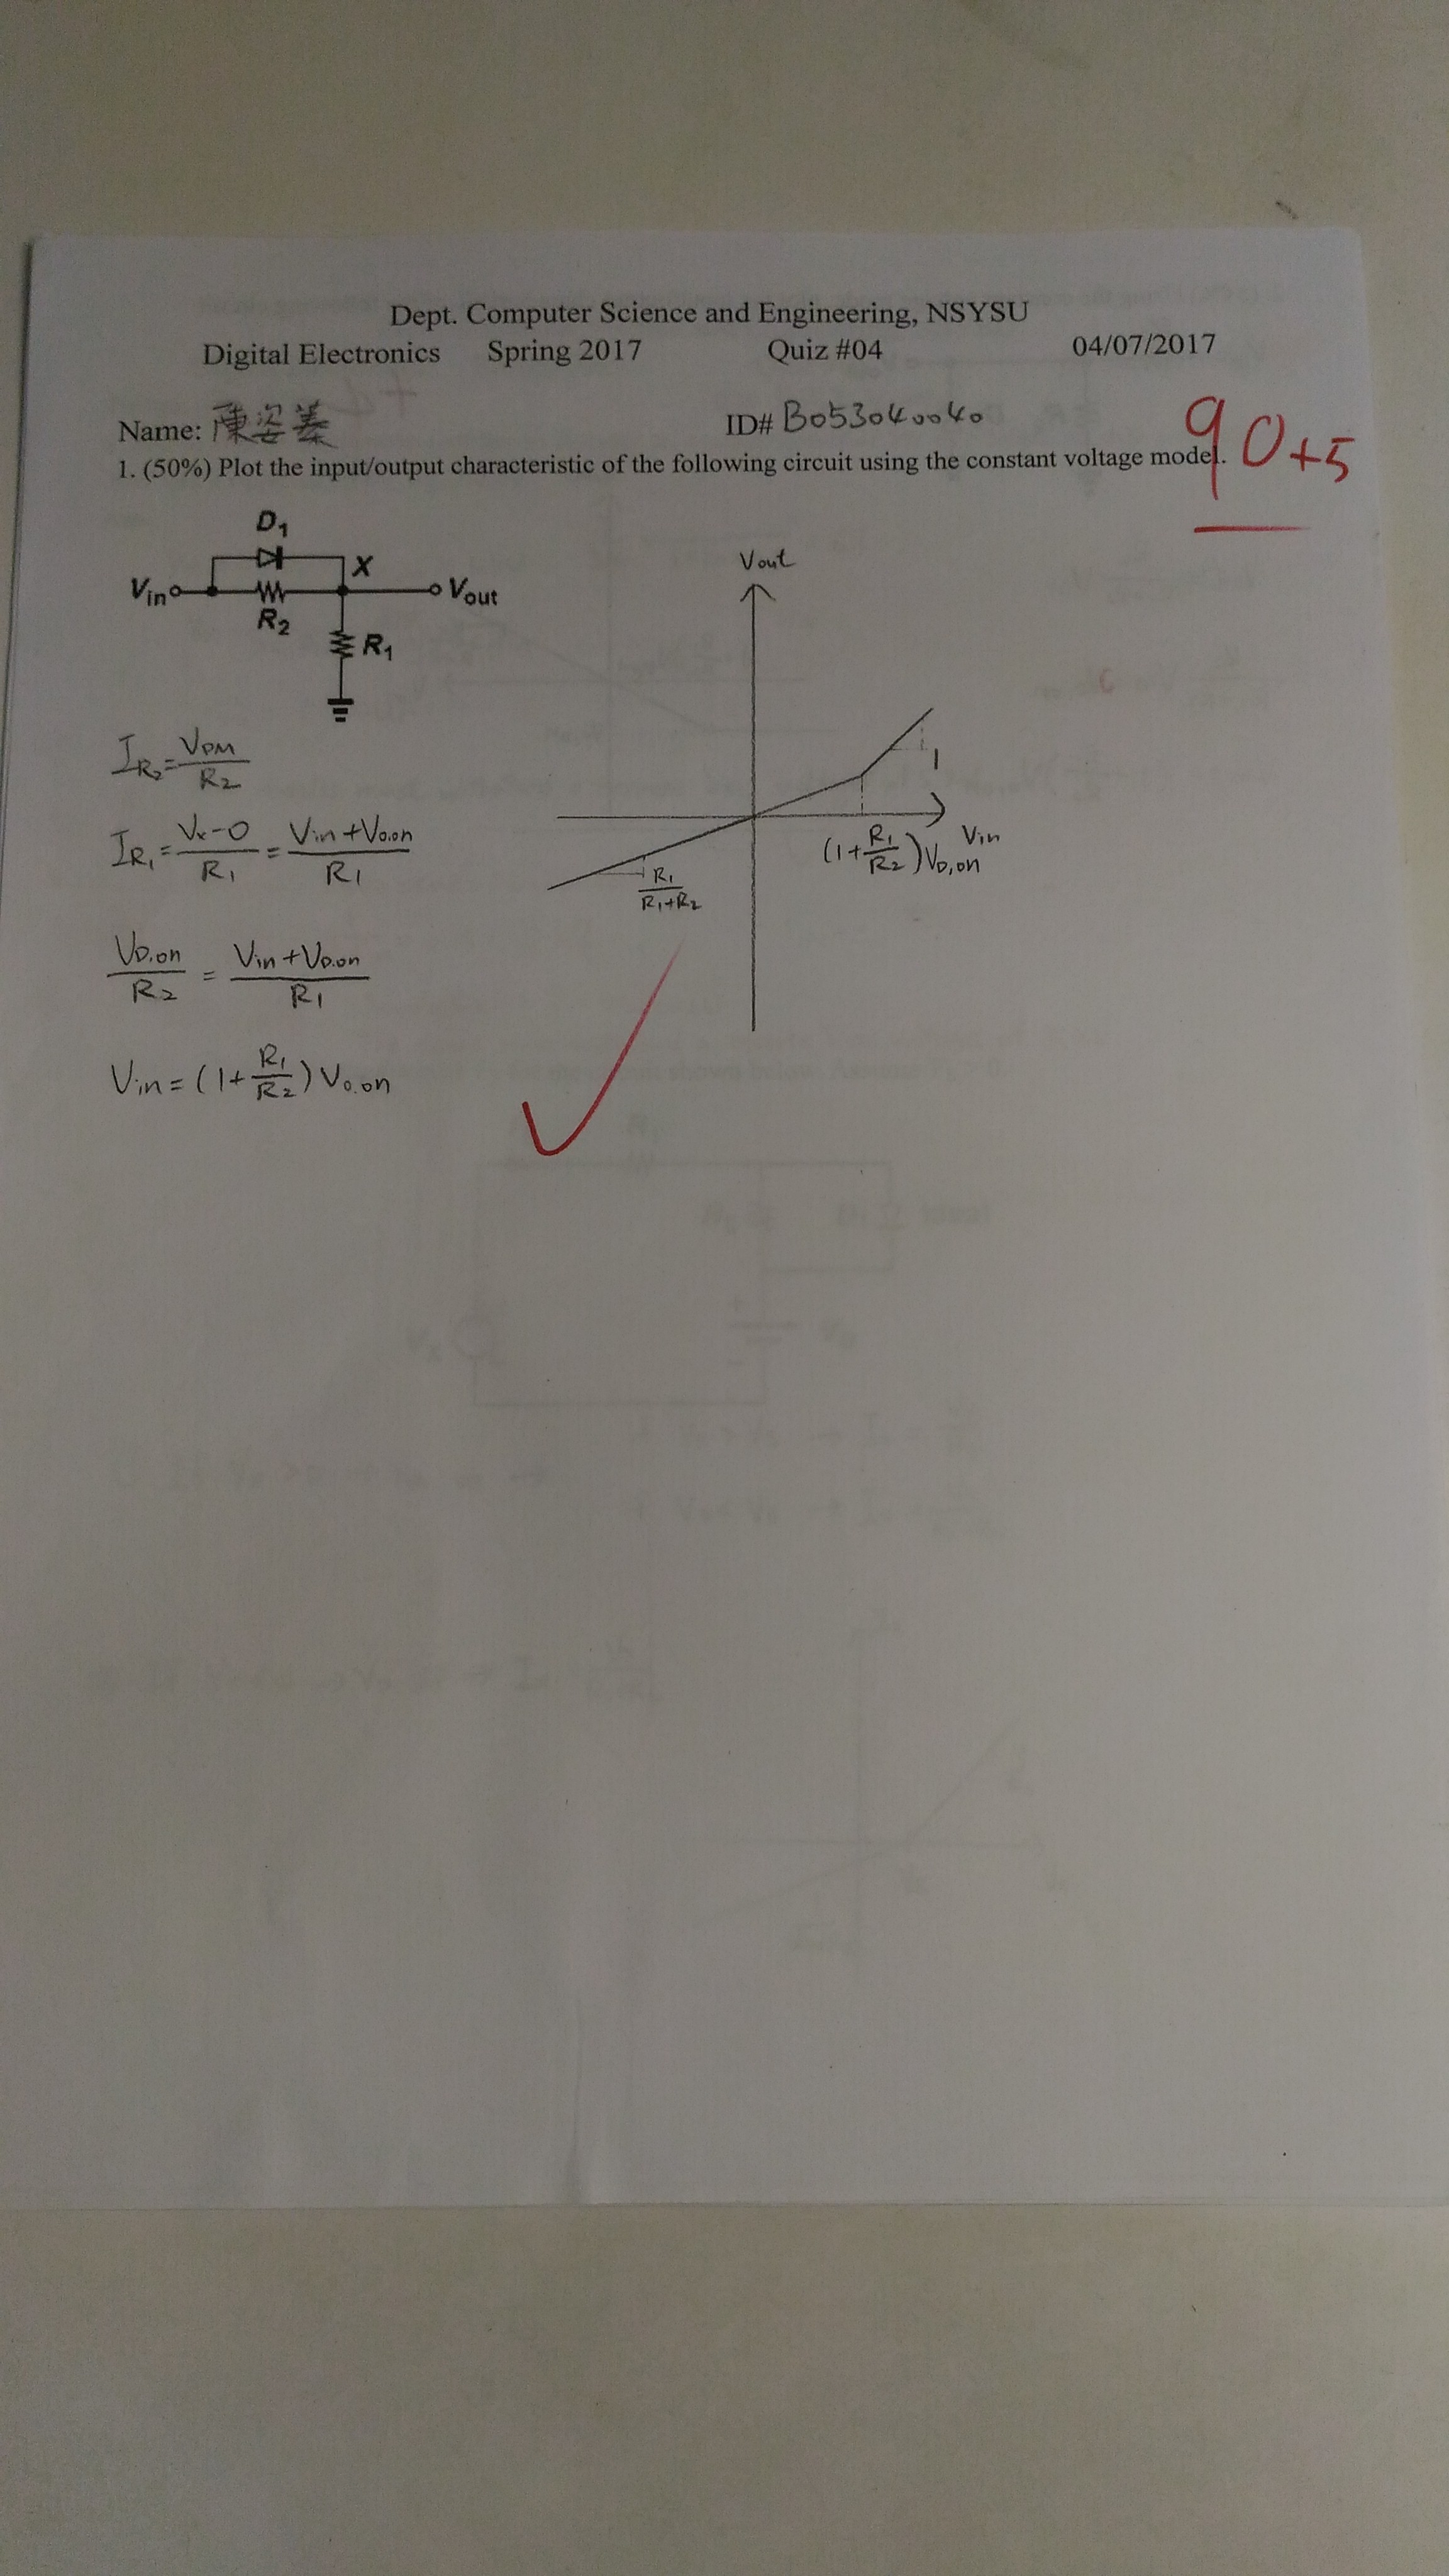 Dept. Computer Science and Engineering, NSYSU
Digital Electronics Spring 2017 Quiz #04 04/07/2017
Name: 陳姿蓁 ID# B053040040
90+5
1. (50%) Plot the input/output characteristic of the following circuit using the constant voltage model.
D1
X
Vin
Vout
R2
R1
Vout
1
Vin
(1+R1/R2)VD,on
R1/R1+R2
IR2=VDM/R2
IR1=Vx-0/R1=Vin+VD.on/R1
VD.on/R2=Vin+VD.on/R1
Vin=(1+R1/R2)VD.on